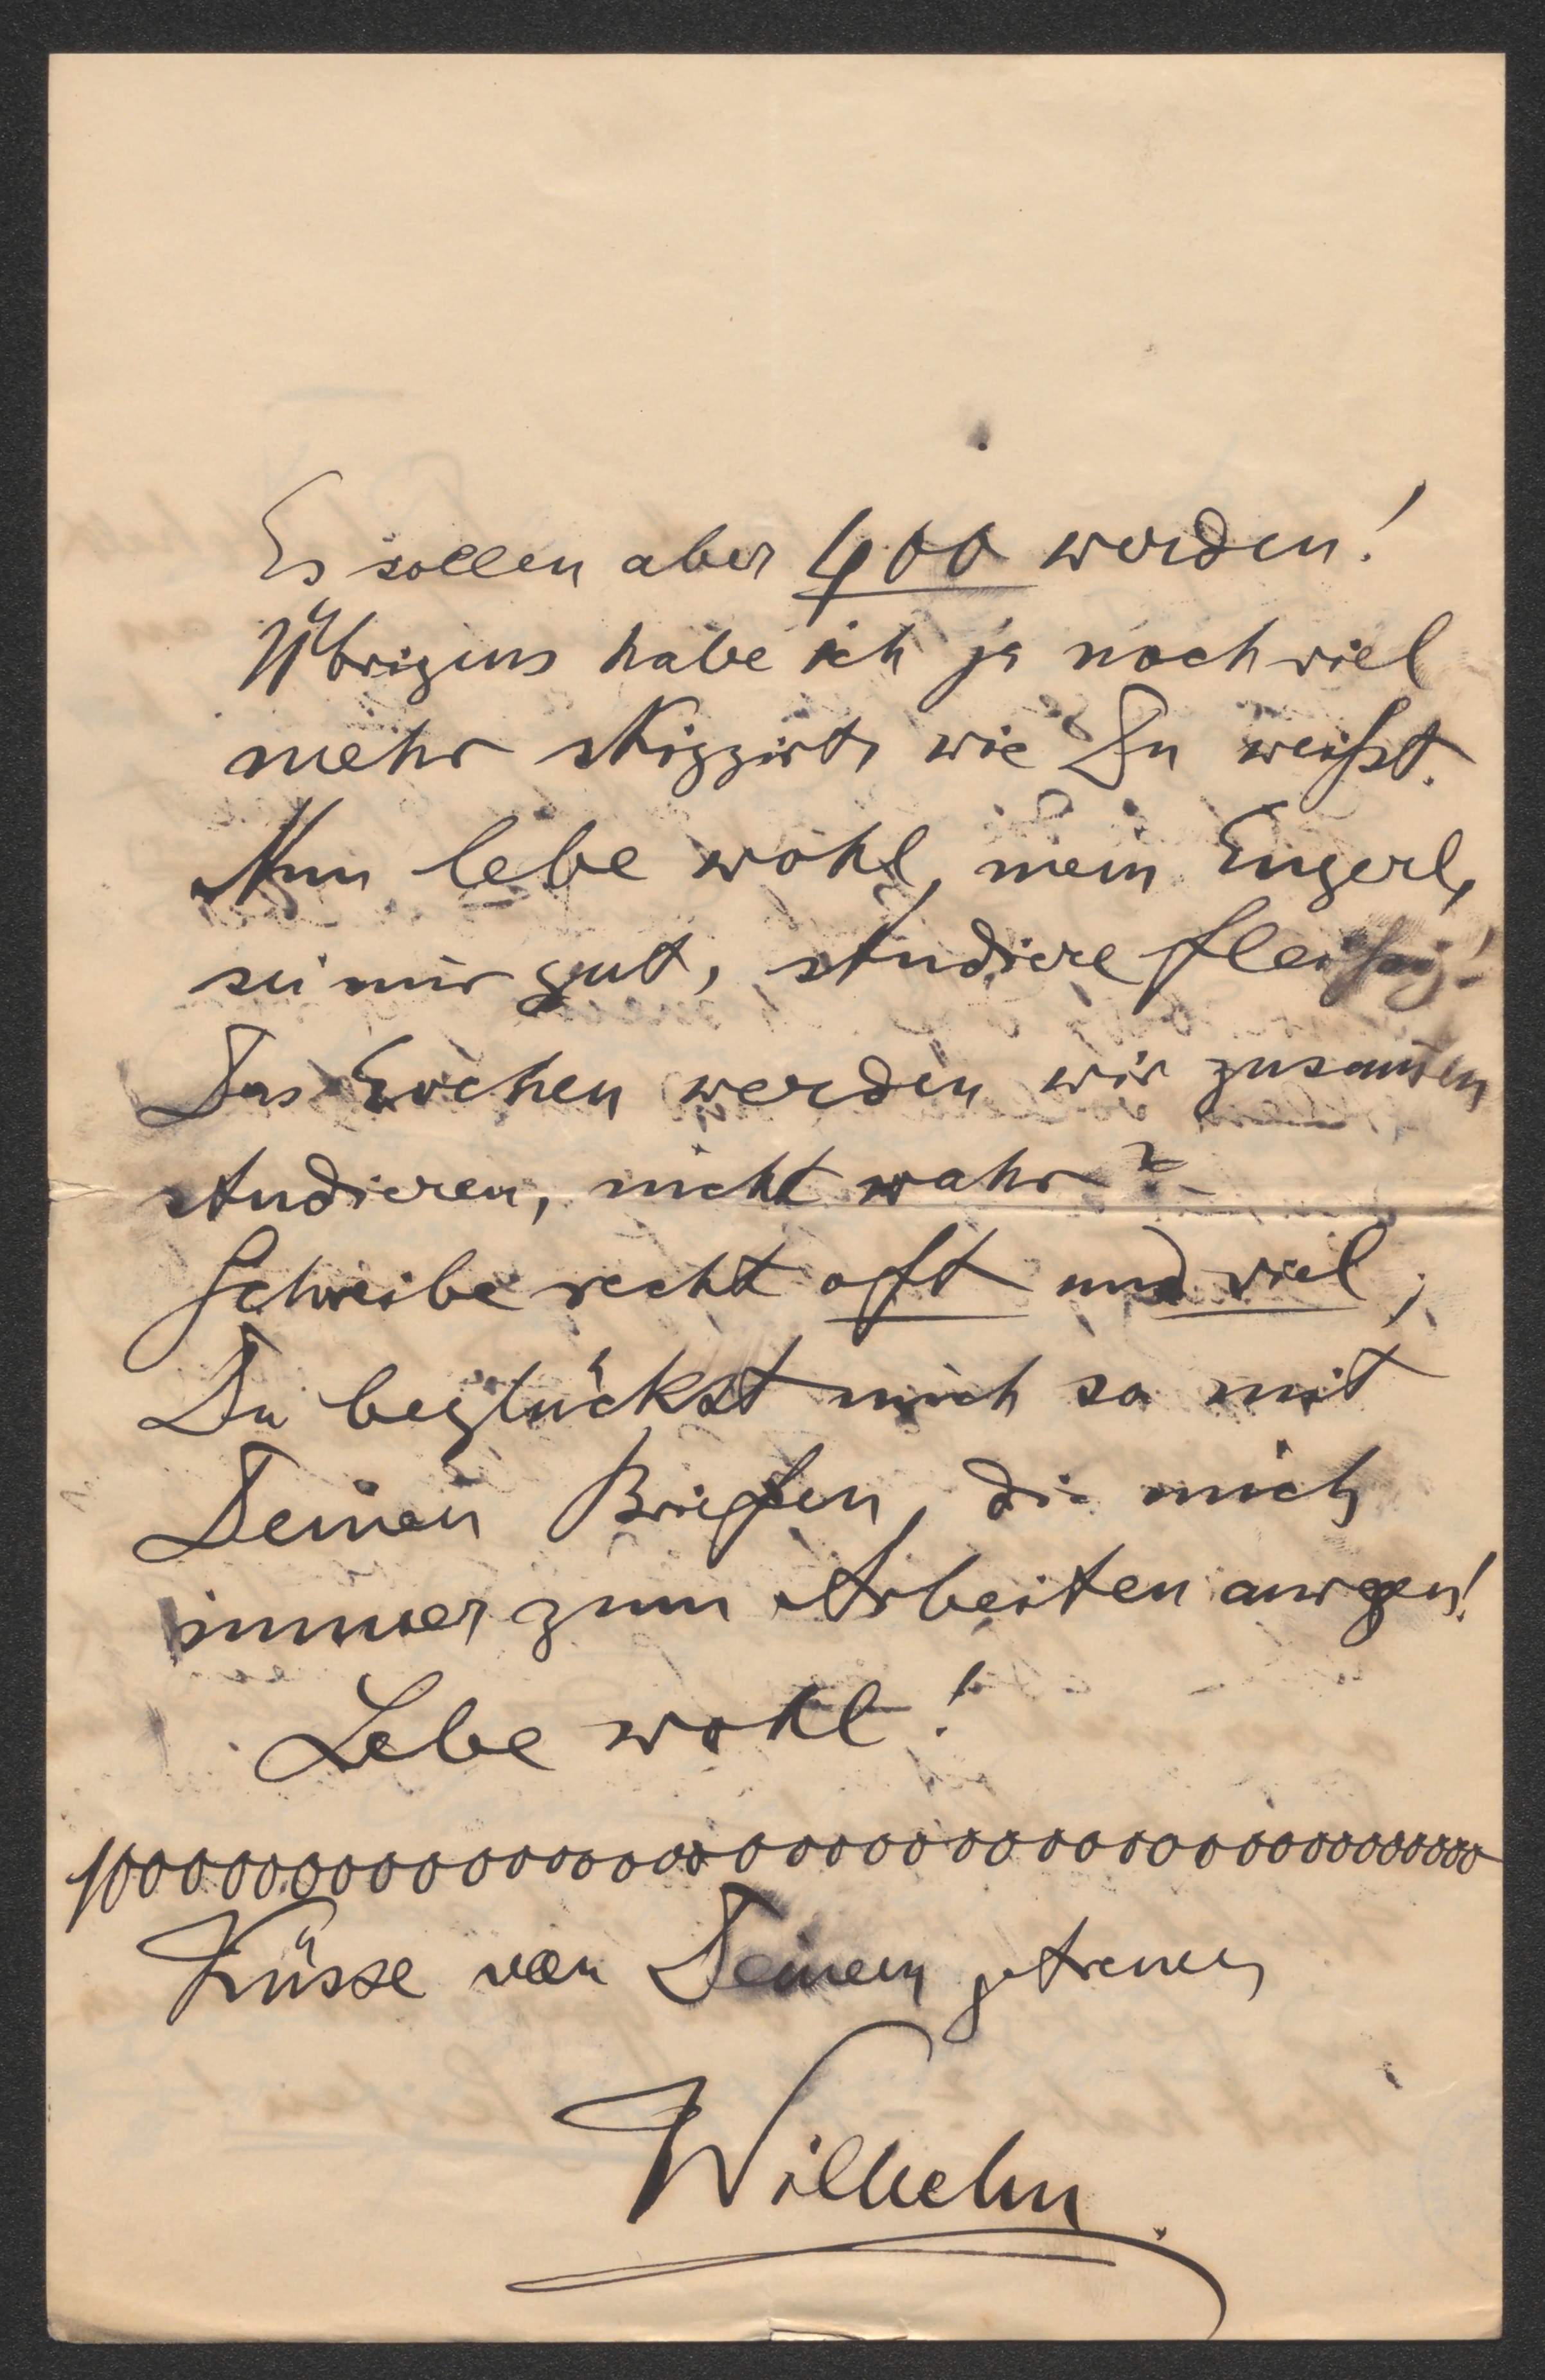 Es sollen aber 400 werden!
Übrigens habe ich ja noch viel
mehr skizzirt, wie Du weißt.
Nun lebe wohl, mein Engerl,
sei mir gut, studiere fleißig!
Das Evchen werden wir zusammen
studieren, nicht wahr?
Schreibe recht oft und viel;
Du beglückst mich so mit
Deinen Briefen, die mich
immer zum Arbeiten anregen!
Lebe wohl!
10000000000000000000000000000000000000
Küsse von Deinem getreuen
Wilhelm.